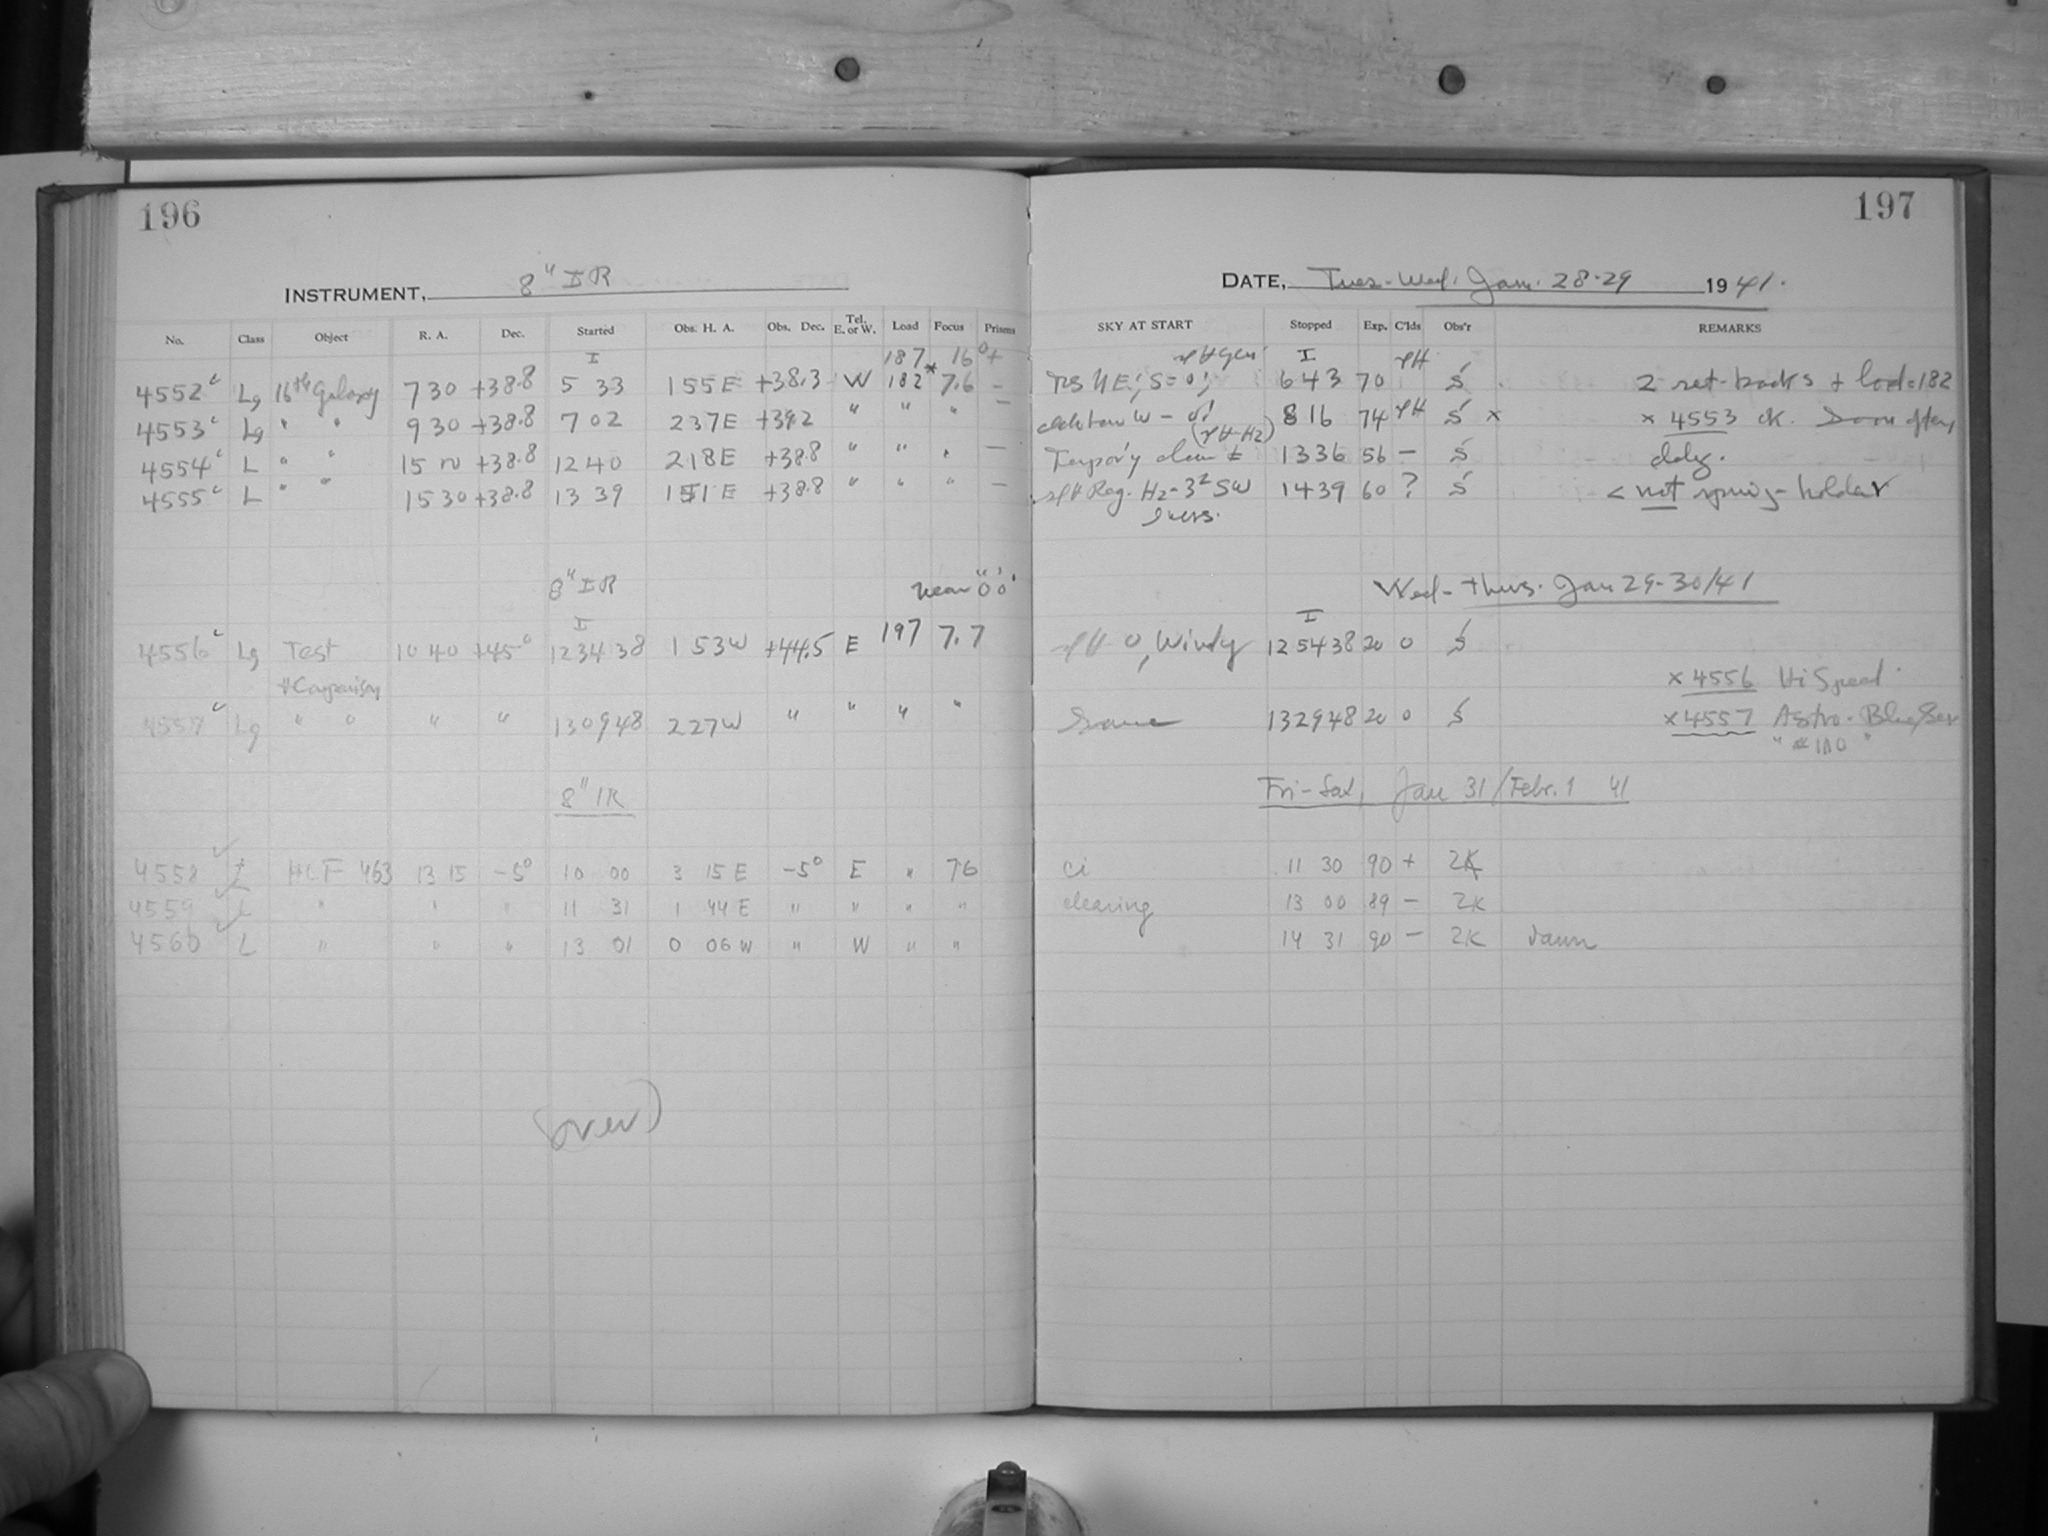 196
INSTRUMENT, 8" IR
No. Class Object R. A. Dec. Started Obs. H. A. Obs. Dec. Tel. E. or W. Load Focus Prisms
I 187 16° +
4552 Lg 16th Galaxy 7 30 +38.8 5 33 1 55 E +38.3 W 182 * 7.6 —
4553 Lg " " 9 30 +38.8 7 02 2 37 E +39.2 " " " —
4554 L " " 15 +38.8 12 40 2 18 E +38.8 " " " —
4555 L " " 15 30 +38.8 13 39 1 51 E +38.8 " " " —
8" IR near
I
4556 Lg Test 10 40 +45° 12 34 38 1 53 W +44.5 E 197 7.7
Comparison
4557 Lg " " " " 13 09 48 2 27 W " " " "
8" IR
4558 L HCF 463 13 15 -5° 10 00 3 15 E -5° E " 76
4559 L " " " 11 31 1 44 E " " " "
4560 L " " " 13 01 0 06 W " W " "
(over)
197
DATE, Tues-Wed. Jan. 28-29 1941.
SKY AT START Stopped Exp. C'lds Obs'r REMARKS
I
NE; S=0; 6 43 70 S 2 set-backs + load=182
W - 8 16 74 S × × 4553 OK. Doom often
13 36 56 — S
Reg. H2-3² SW 14 39 60 ? S < not spring-holder
Wed-Thurs. Jan 29-30/41
I
0, Windy 12 54 38 20 0 S
× 4556 Hi Speed.
Same 13 29 48 20 0 S × 4557 Astro-Blue
Fri-Sat, Jan 31/Febr. 1 41
Ci 11 30 90 + ZK
clearing 13 00 89 — ZK
14 31 90 — ZK dawn